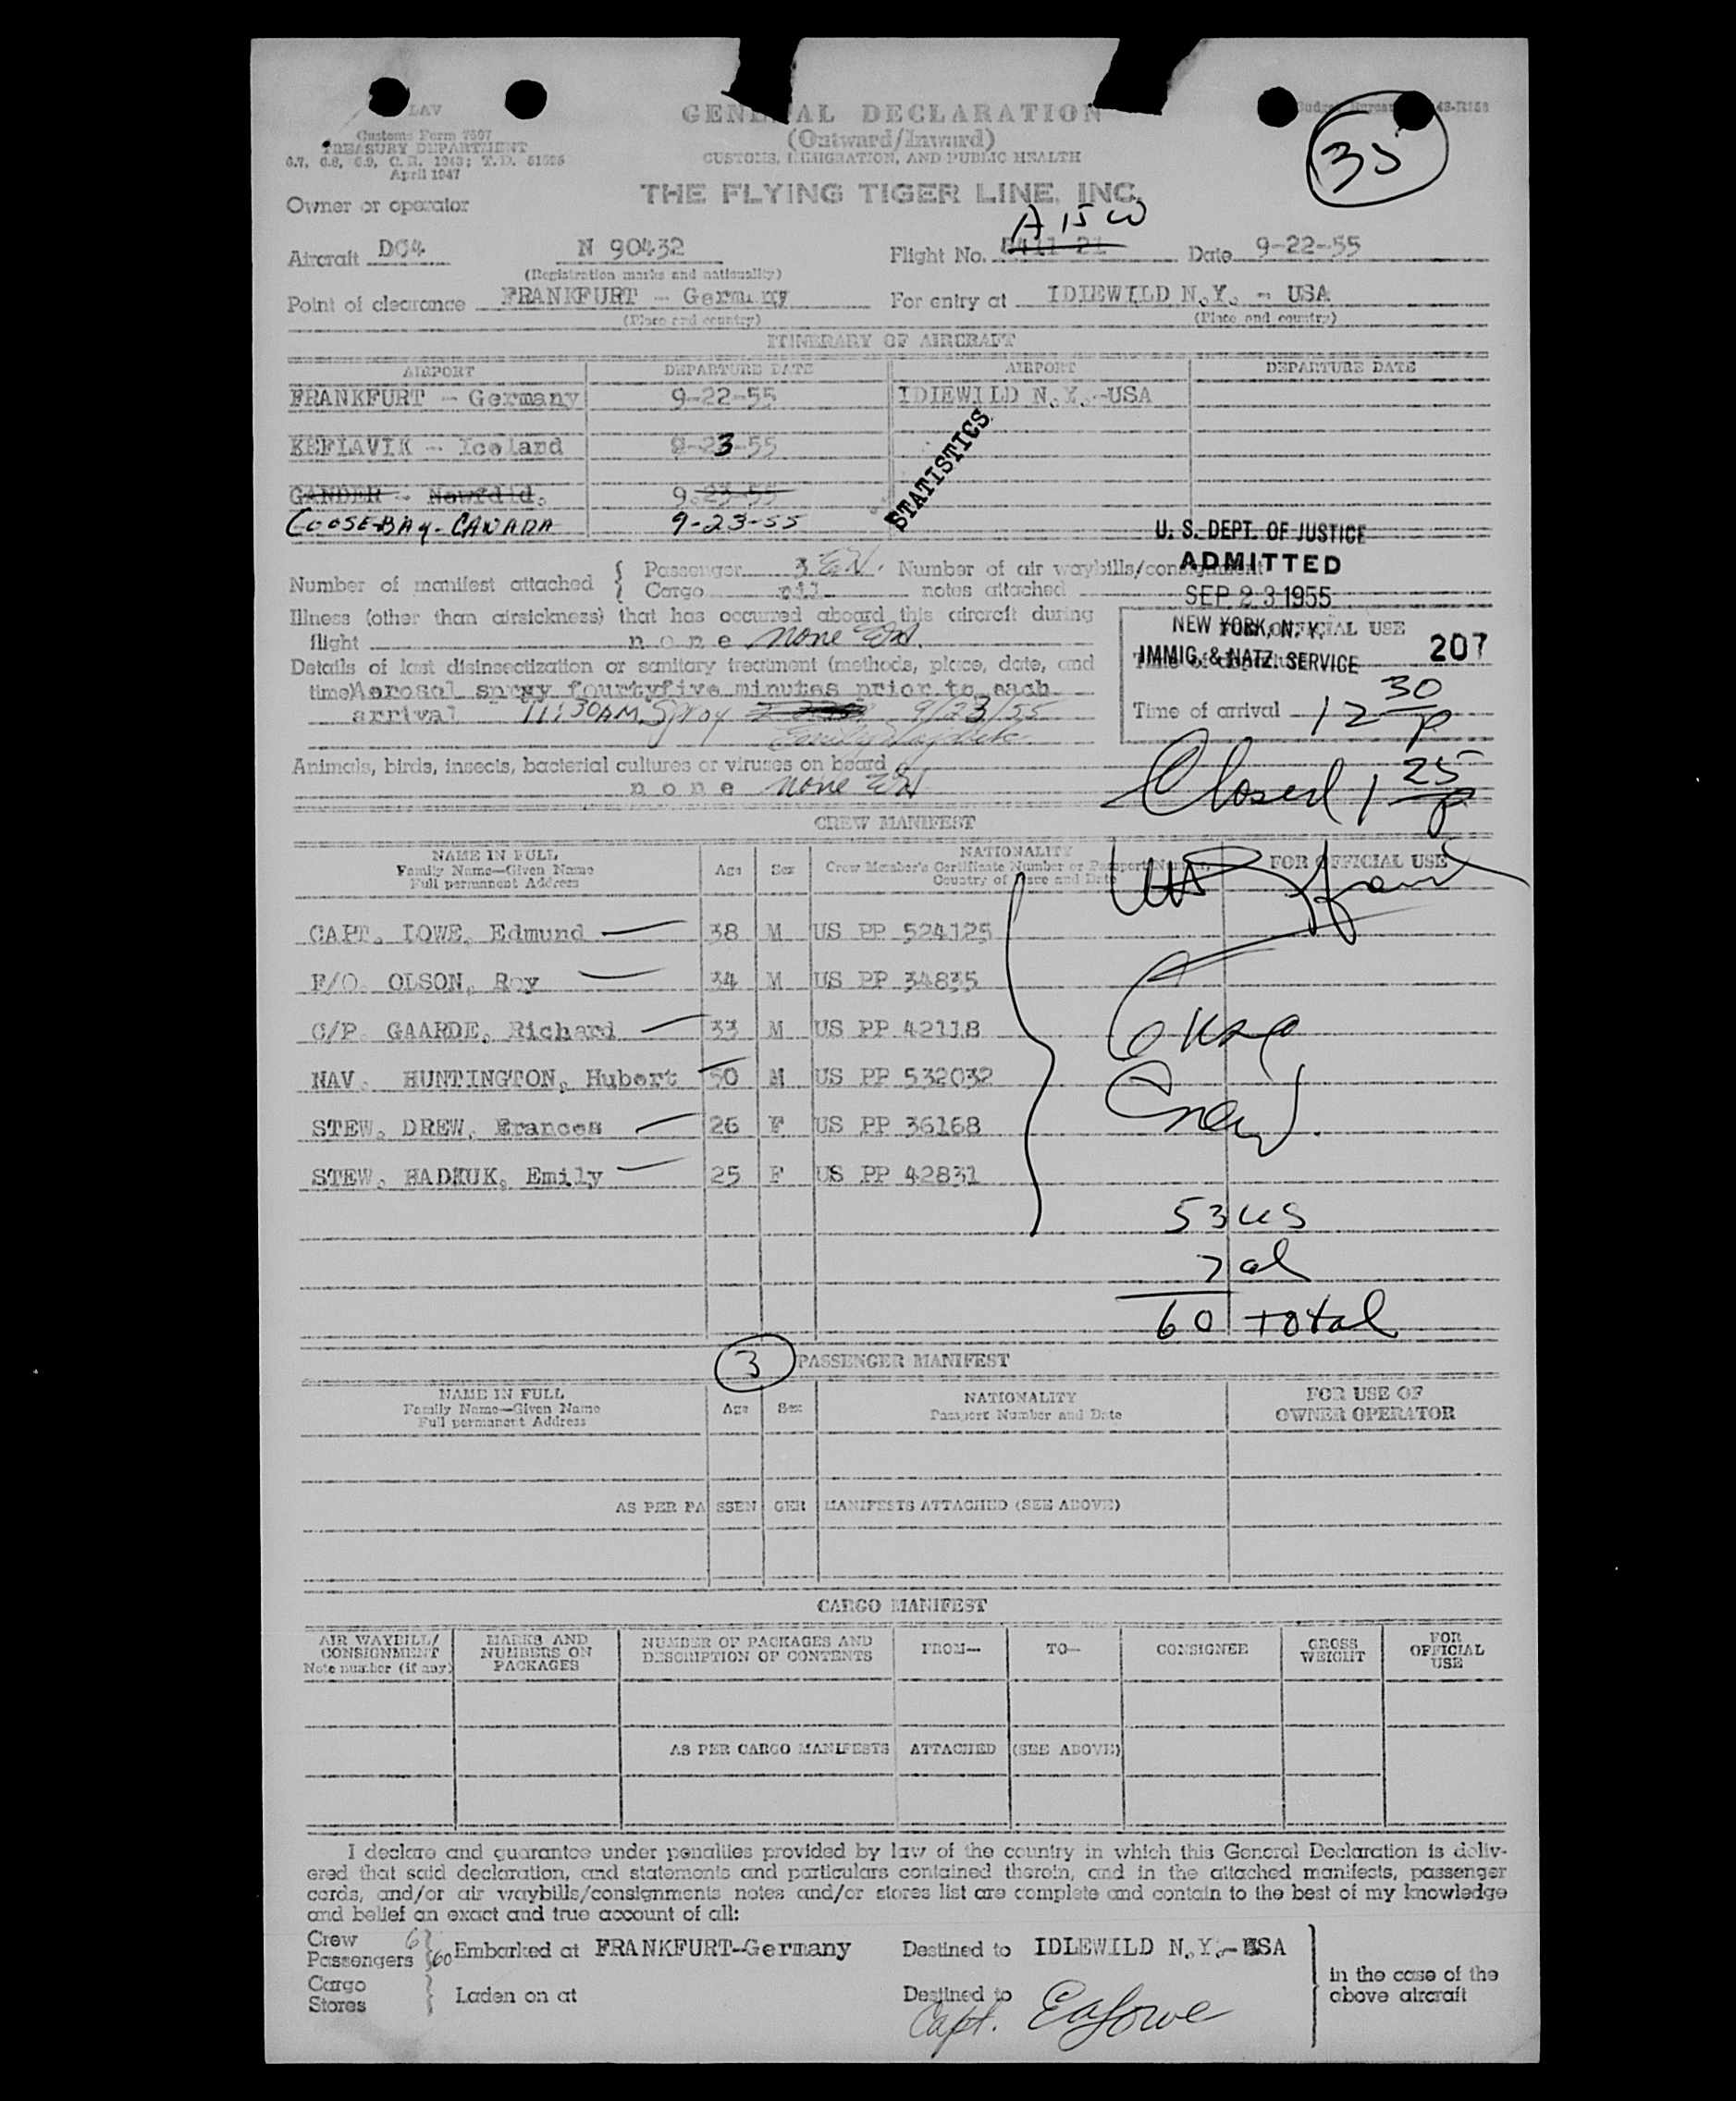 LAV
Customs Form 7507
TREASURY DEPARTMENT
April 1947
GENERAL DECLARATION
(Outward/Inward)
CUSTOMS, IMMIGRATION, AND PUBLIC HEALTH
35
Owner or operator
THE FLYING TIGER LINE, INC.
A 15 W
Aircraft DC4 N 90432 Flight No. Date 9-22-55
(Registration marks and nationality)
Point of clearance FRANKFURT - Germany For entry at IDLEWILD N.Y. - USA
(Place and country) (Place and country)
ITINERARY OF AIRCRAFT
AIRPORT DEPARTURE DATE AIRPORT DEPARTURE DATE
FRANKFURT - Germany 9-22-55 IDLEWILD N.Y.-USA
KEFLAVIK - Iceland 9-23-55
STATISTICS
GANDER - Newfdld. 9-23-55
GOOSE-BAY-CANADA 9-23-55
U. S. DEPT. OF JUSTICE
ADMITTED
SEP 23 1955
NEW YORK, N. Y.
IMMIG. & NATZ. SERVICE 207
Number of manifest attached { Passenger 3 Number of air waybills/consignment
Cargo nil notes attached
Illness (other than airsickness) that has occurred aboard this aircraft during
flight none none
FOR OFFICIAL USE
Details of last disinsectization or sanitary treatment (methods, place, date, and
time) Aerosol spray fourtyfive minutes prior to each
arrival 11:30AM Spray 9/23/55
Time of arrival 12 30 P
Animals, birds, insects, bacterial cultures or viruses on board
none none
Closed 1 25 P
CREW MANIFEST
NAME IN FULL
Family Name—Given Name
Full permanent Address
Age Sex
NATIONALITY
Crew Member's Certificate Number or Passport Number,
Country of Issue and Date
FOR OFFICIAL USE
CAPT. LOWE, Edmund 38 M US PP 524125
F/O. OLSON, Roy 34 M US PP 34835
C/P. GAARDE, Richard 33 M US PP 42118
NAV. HUNTINGTON, Hubert 50 M US PP 532032
STEW. DREW, Frances 26 F US PP 36168
STEW. HADMUK, Emily 25 F US PP 42831
Crew
53 US
7 al
60 total
3
PASSENGER MANIFEST
NAME IN FULL
Family Name—Given Name
Full permanent Address
Age Sex
NATIONALITY
Passport Number and Date
FOR USE OF
OWNER OPERATOR
AS PER PASSENGER MANIFESTS ATTACHED (SEE ABOVE)
CARGO MANIFEST
AIR WAYBILL/
CONSIGNMENT
Note number (if any)
MARKS AND
NUMBERS ON
PACKAGES
NUMBER OF PACKAGES AND
DESCRIPTION OF CONTENTS
FROM— TO— CONSIGNEE
GROSS
WEIGHT
FOR
OFFICIAL
USE
AS PER CARGO MANIFESTS ATTACHED (SEE ABOVE)
I declare and guarantee under penalties provided by law of the country in which this General Declaration is deliv-
ered that said declaration, and statements and particulars contained therein, and in the attached manifests, passenger
cards, and/or air waybills/consignments notes and/or stores list are complete and contain to the best of my knowledge
and belief an exact and true account of all:
Crew 6
Passengers 60 Embarked at FRANKFURT-Germany Destined to IDLEWILD N.Y.-USA
Cargo
Stores Laden on at Destined to
in the case of the
above aircraft
Capt. EALowe